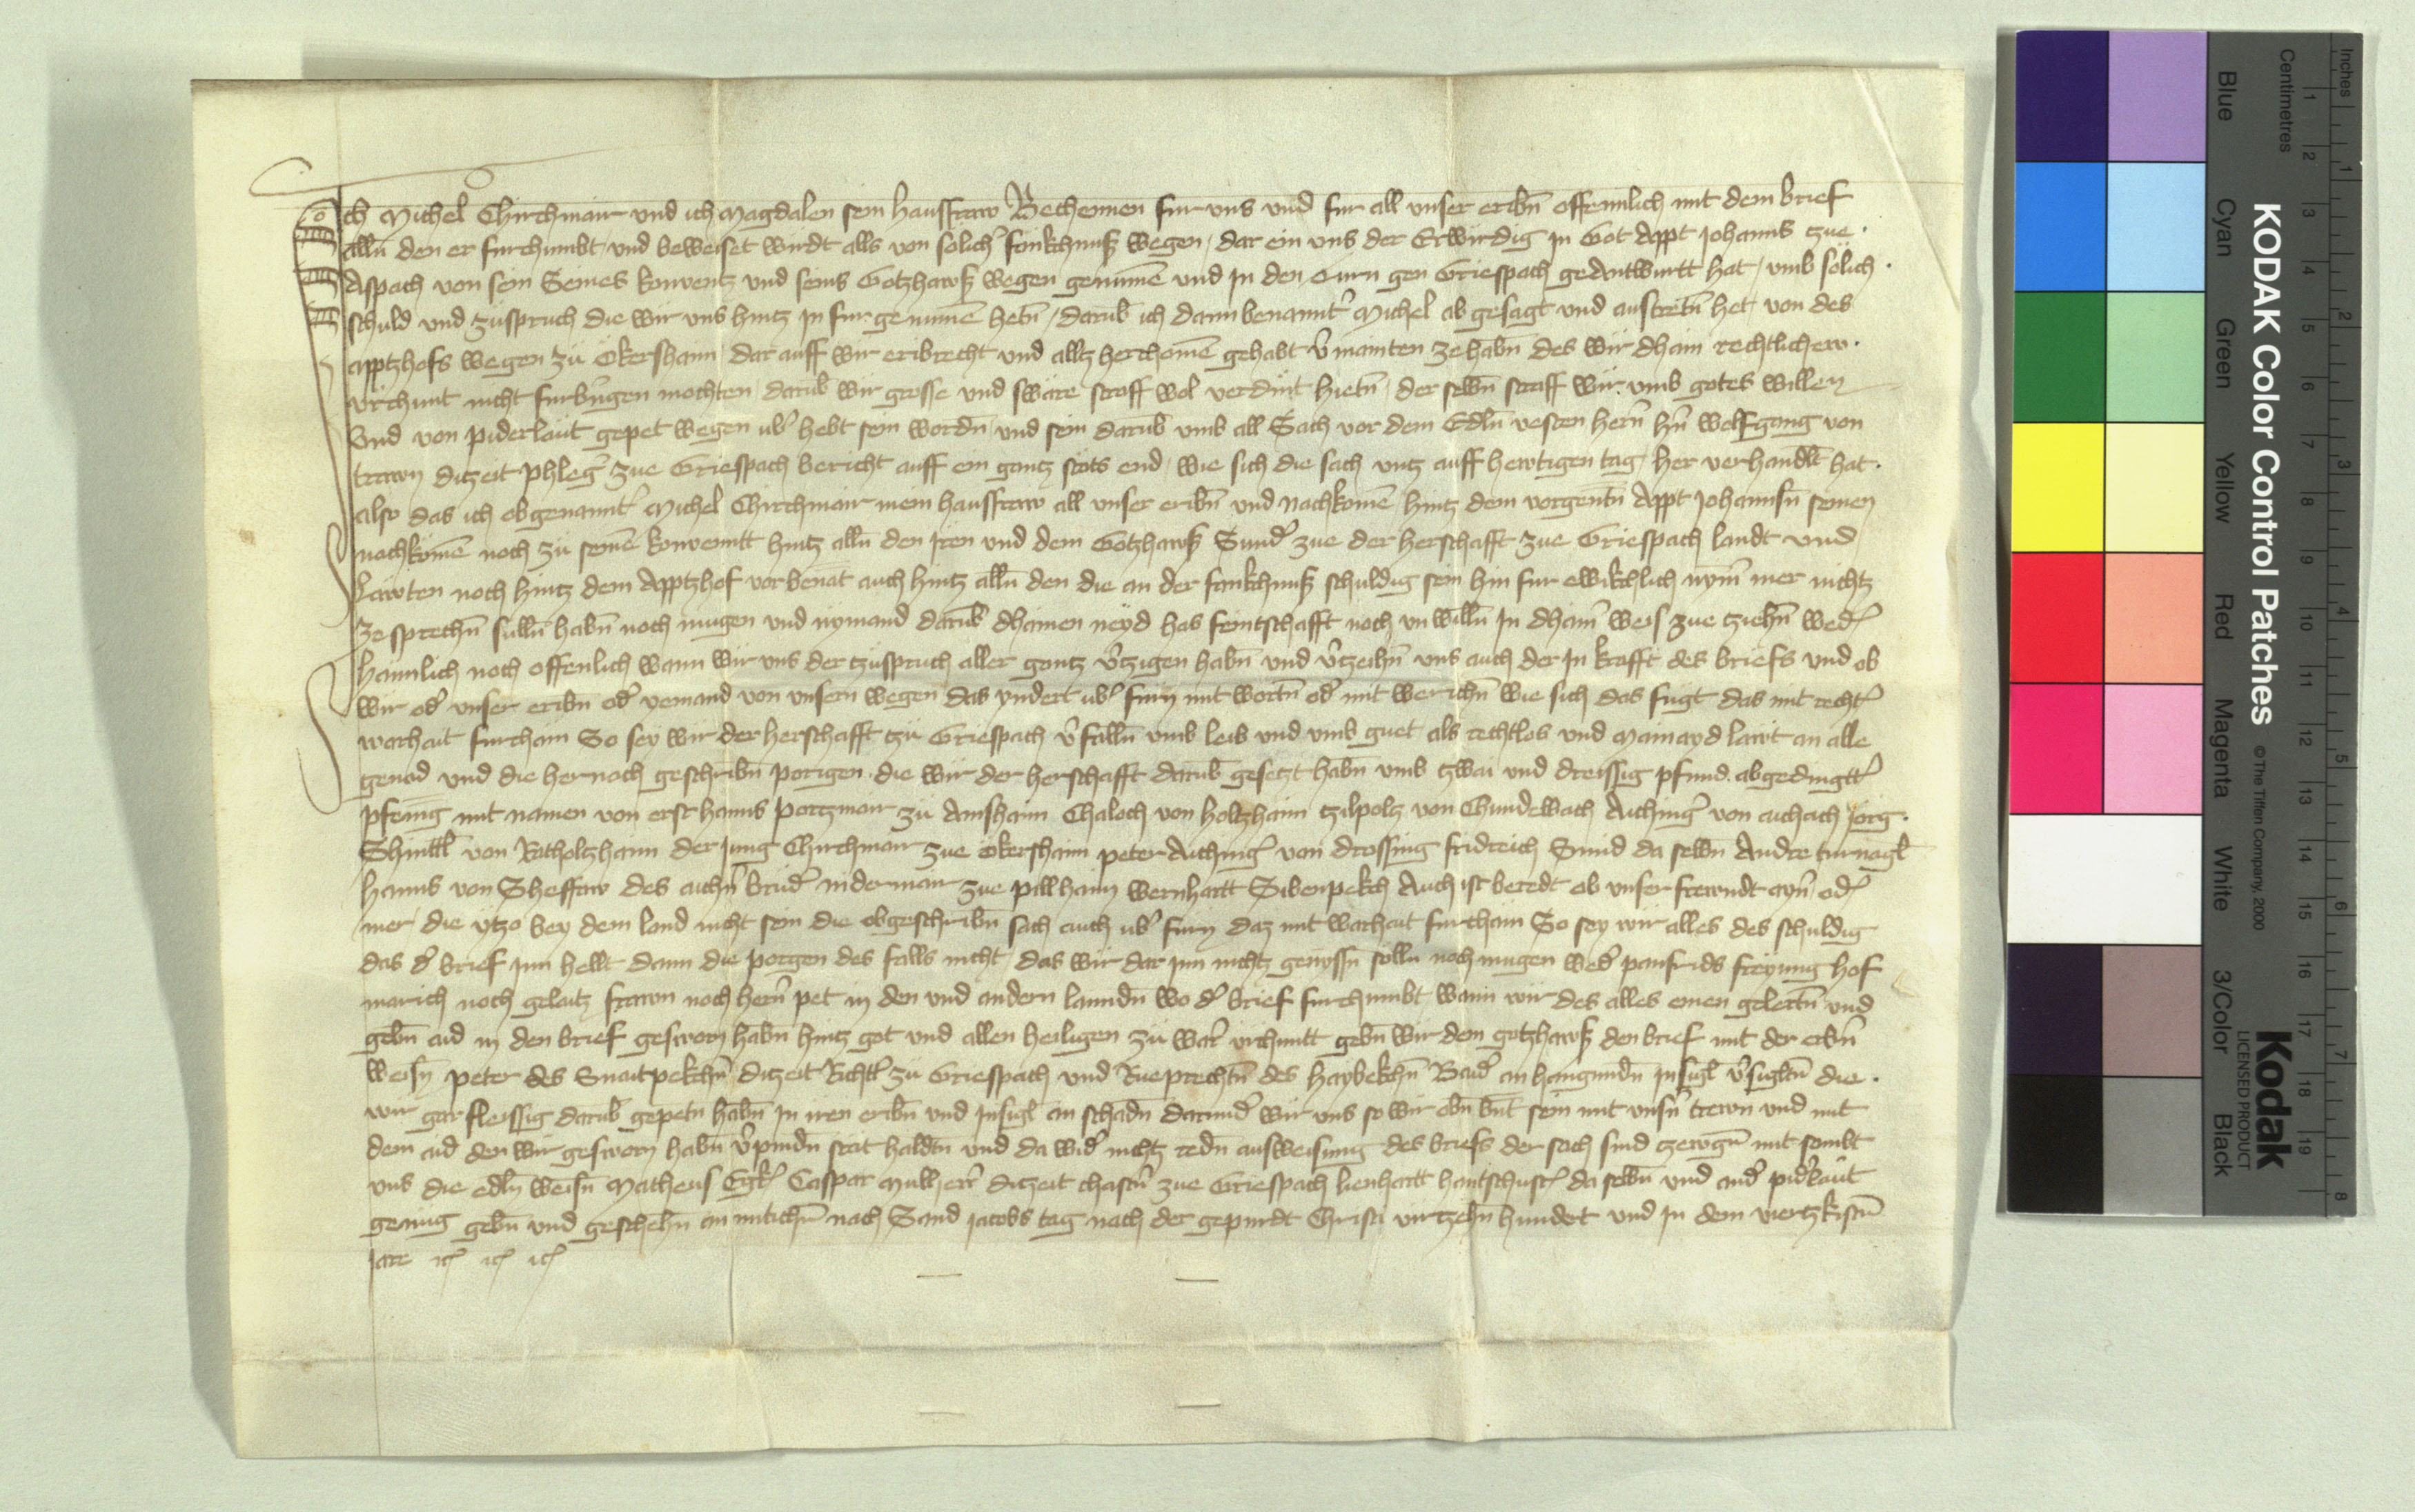 Ich Michel Chirchmair und ich Magdalen sein hausfraw Bechennen fur uns und fur all unser eribn̄ offennlich mit dem brief
alln̄ den er furchumbt und beweiset wirdt alls von solich̄ fankchnuß wegen dar ein uns der Erwirdig in Got Appt Johanns zue
Aspach von sein Seines konventz und seins Gotzhawß wegen genumē und in den Turn gen Griespach geantwurtt hat umb sölich
schuld und zuspruch die wir uns hintz in fur genumē hetn̄ darub̄ ich dann benannt̄ Michel ab gesagt und austretn̄ het von des
apptzhofs wegen zu Okershaim dar auff wir eribrecht und alltz herchomē gehabt v̄mainten ze habn̄ des wir dhain rechtlichew
urchunt nicht furbringen mochten darub̄ wir grosse und swäre straff wol verdint hietn̄ der selbn̄ straff wir umb gotes willen
Und von piderläut gepet wegen ub̄ hebt sein wordn̄ und sein darub̄ umb all Sach vor dem Edln̄ vesten hern̄ hn̄ Wolfgang von
trawn diczeit phleḡ zue Griespach bericht auff ein gantz stäts end wie sich die sach untz auff hewtigen tag her verhandlt hat
also das ich obgenannt̄ Michel Chirchmair mein hausfraw all unser eribn̄ und nachkomē hintz dem vorgentn̄ Appt Johannsn̄ seinen
nachkömē noch zu seinē konventt hintz alln̄ den iren und dem Gotzhawß Sund̄ zue der herschafft zue Griespach landt und
Läwten noch hintz dem Apptzhof vor benāt auch hintz alln̄ den die an der fankchnuß schuldig sein hin fur ewikchlich nym̄ mer nichtz
ze sprechn̄ sulln̄ habn̄ noch mugen und nymand darub̄ dhainen neyd has feintschafft noch un willn̄ In dhain̄ weis zue ziehn̄ wed̄
haimlich noch offenlich wann wir uns der zuspruch aller gantz v̄tzigen habn̄ und v̄tzeihn̄ uns auch der In krafft des briefs und ob
wir od̄ unser eribn̄ od̄ yemand von unsern wegen das yndert ub̄ furn mit wortn̄ od̄ mit werichn̄ wie sich das fugt das mit recht̄
warhait furchäm So sey wir der herschafft zu Griespach v̄falln̄ umb leib und umb guet als rechtlos und mainayd läwt an alle
genad und die hernach geschribn̄ porigen die wir der herschafft darub̄ gesetzt habn̄ umb zwai und dreissig pfund abgedingtt̄
pfenīg mit namen von erst hanns portzmair zu Amshaim Chaloch von holtzhaim tzilpoltz von Chundewach Aichinḡ von aichach Jorg
Shinttl̄ von Ratholtzhaim der Jung Chirchmair zue Okershaim peter Aichinḡ von drossing fridreich Smid da selbn̄ Andre turnagl̄
hanns von Sheffaw des aichn̄ brud̄ niderman zue pillhaim Wernhartt Sibenpekch Auch ist beredt ob unser frewndt ayn̄ od̄
mer die ytzo bey dem land nicht sein die obgeschribn̄ sach auch ub̄ furn daz mit warhait furchäm So sey wir alles des schuldig
das d̄ brief inn hellt dann die porgen des falls nicht das wir dar inn nichtz genyssn̄ solln̄ noch mugen wed̄ panfrids freyung hof
marich noch gelaitz frawn noch hern̄ pet in den und andern lanndn̄ wo d̄ brief furchumbt wann wir des alles einen gelertn̄ und
gebn̄ aid in den brief gesworn habn̄ hintz got und allen heiligen zu war̄ urchuntt gebn̄ wir dem gotzhawß den brief mit der erbn̄
weisn̄ peter des Snaitpekchn̄ diczeit Richt̄ zu Griespach und Rueprechtn̄ des haybekchn̄ Baid̄ an hangundn̄ Insigl̄ v̄sigltn̄ die
wir gar fleissig darub̄ gepetn habn̄ In iren eribn̄ und Insigl̄ an schadn̄ darund̄ wir uns so wir obn̄ bn̄t sein mit unsn̄ trewn und mit
dem aid den wir gesworn habn̄ v̄pindn̄ stät haldtn̄ und da wid̄ nichtz redn̄ ausweisung des briefs der sach sind zewgn̄ mit sambt
uns die edln̄ weisn̄ Matheus Egk̄ Caspar mulherr̄ diczeit chastn̄ zue Griespach lienhartt hantschust̄ da selbn̄ und and̄ pid̄läut
genug gebn̄ und geschehn̄ an mitichn̄ nach Sand Jacobs tag nach der gepurdt Christi virtzehn̄ hundert und In dem viertzkistn̄
jare etc̄ etc̄ etc̄
KODAK Color Control Patches
© The Tiffen Company, 2000
Kodak
LICENSED PRODUCT
Inches
Centimetres
Blue
Cyan
Green
Yellow
Red
Magenta
White
3/Color
Black
1
2
3
4
5
6
7
8
9
10
11
12
13
14
15
16
17
18
19
1
2
3
4
5
6
7
8